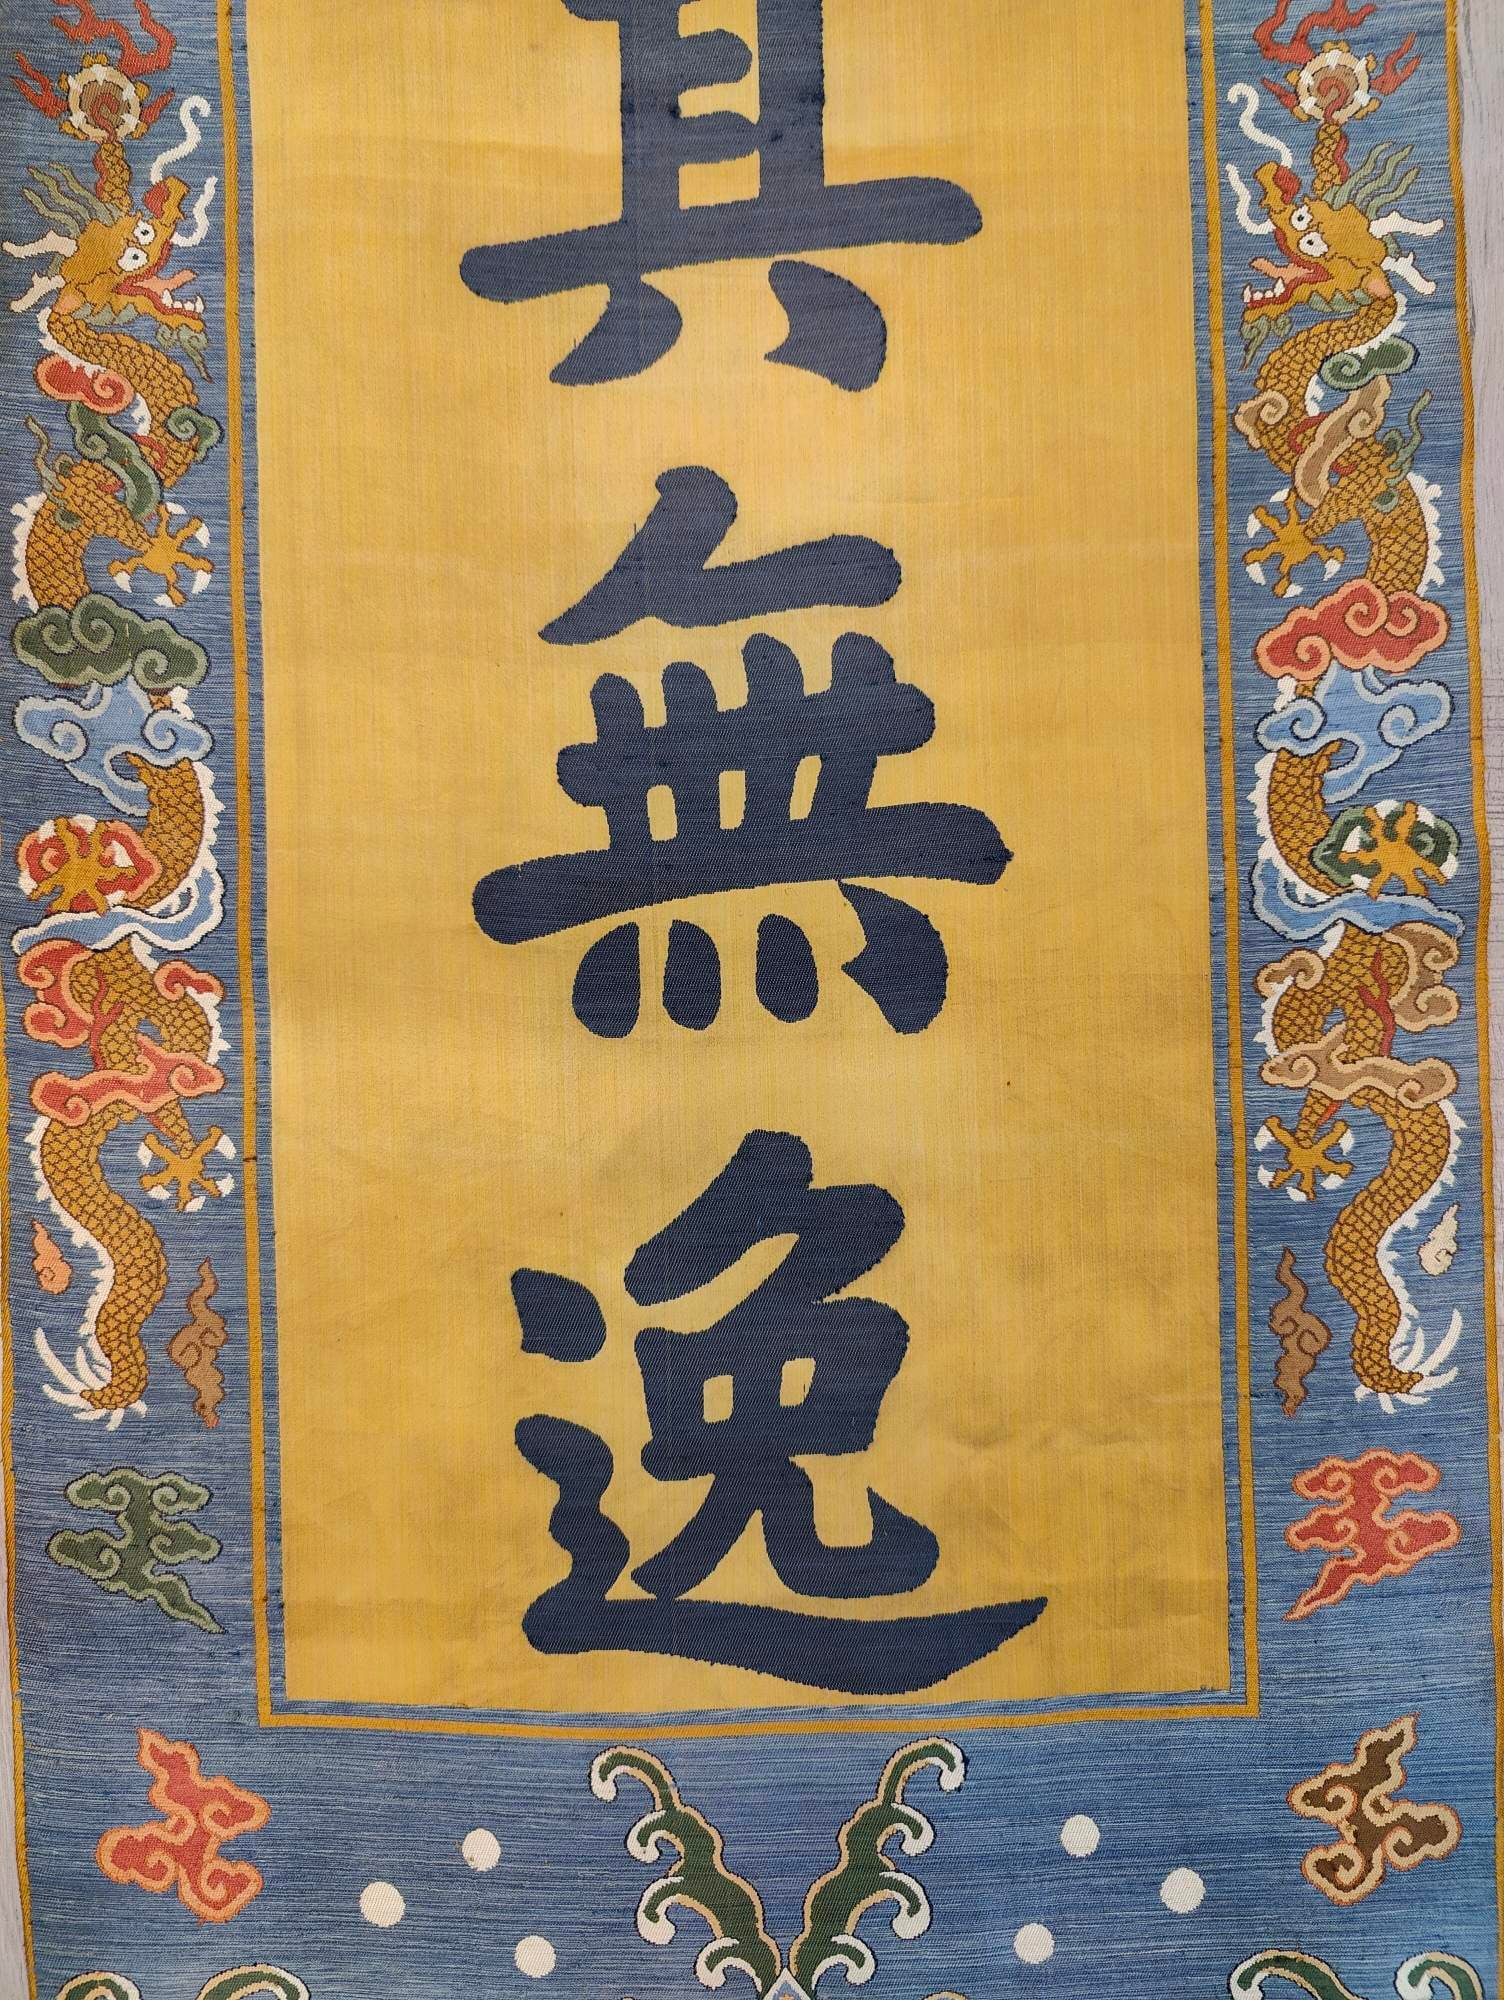 其
無
逸